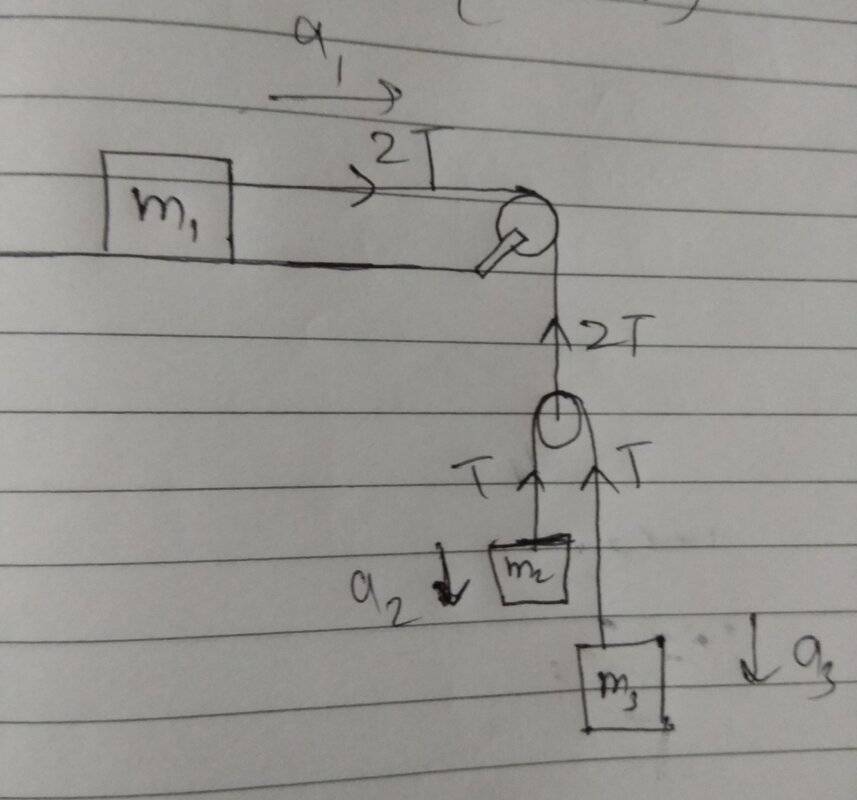 a₁
2T
m₁
2T
T T
a₂ m₂
m₃ a₃